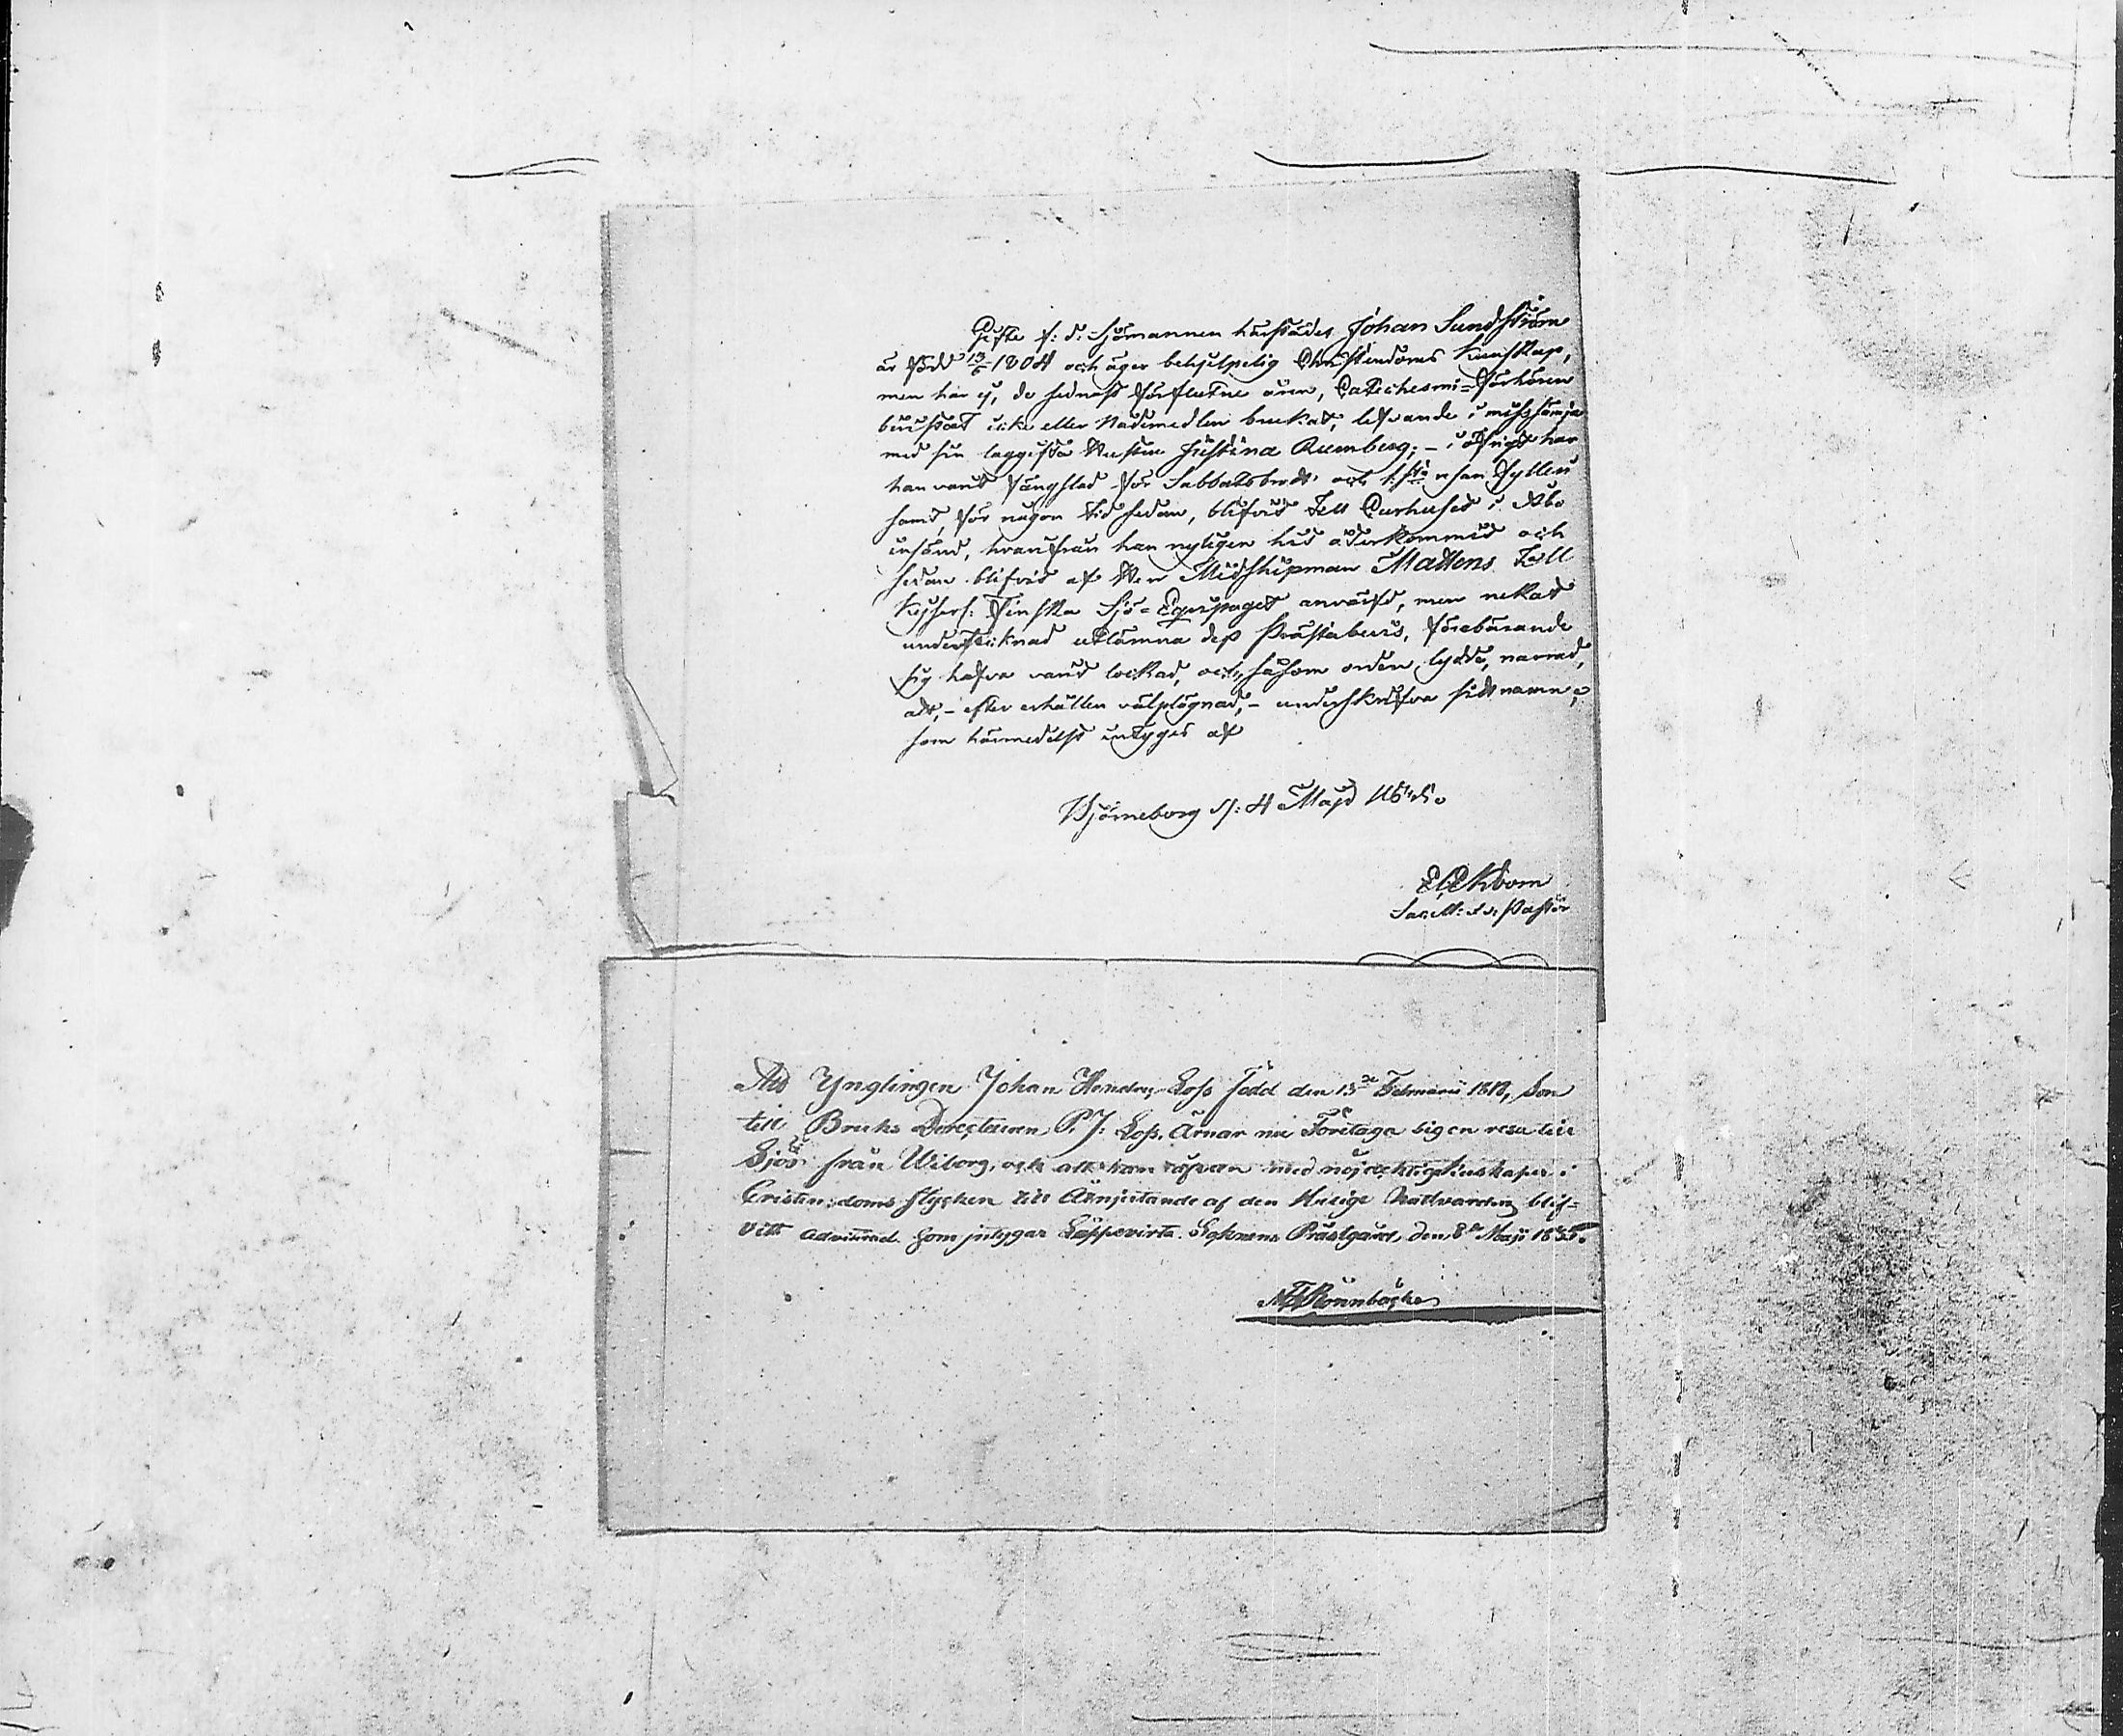 Gifte f: d: Sjömannen härstädes Johan Sundström
är född 13/6 1804 och äger behjelpelig Christendoms kunskap,
men har ej, de sednast förflutne åren, Catechesmi=förhören
bevistat icke eller Nådemedlen brukat, lefvande i misssämja
med sin laggifta Hustru Justina Rumberg; – i öfrigt har
han varit fängslad för Sabbatsbrott och resan fylleri
samt, för någon tid sedan, blifvit till Curhuset i Åbo
insänd, hvarifrån han nyligen hit återkommit och
sedan blifvit af Herr Midshipman Mattens till
Kejserl: Finska Sjö=Equipaget anvärfd, men nekat
undertecknad utlämna dess Prästabevis, förebärande
sig hafva varit lockad, och, såsom orden lydde, narrad,
att, – efter erhållen välplägnad, – underskrifva sitt namn;
som härmedelst intygas af
Björneborg d: 4 Maji
Sac. M: v. Pastor
Att Ynglingen Johan Hendric Loss född den 13de Februarii 1818, Son
till Bruks Directeuren P. J: Loss, Ärnar nu Företaga sig en resa till
Sjös från Wiborg, och att han med nöjacktig kunskaper i
Cristendoms stycken till Åtnjutande af den Helige Nattvarden blif=
vitt admitterad. Som intygar Läppevirta Soknens Prästgård, den 8de Maji 1835.
Rönnbäck